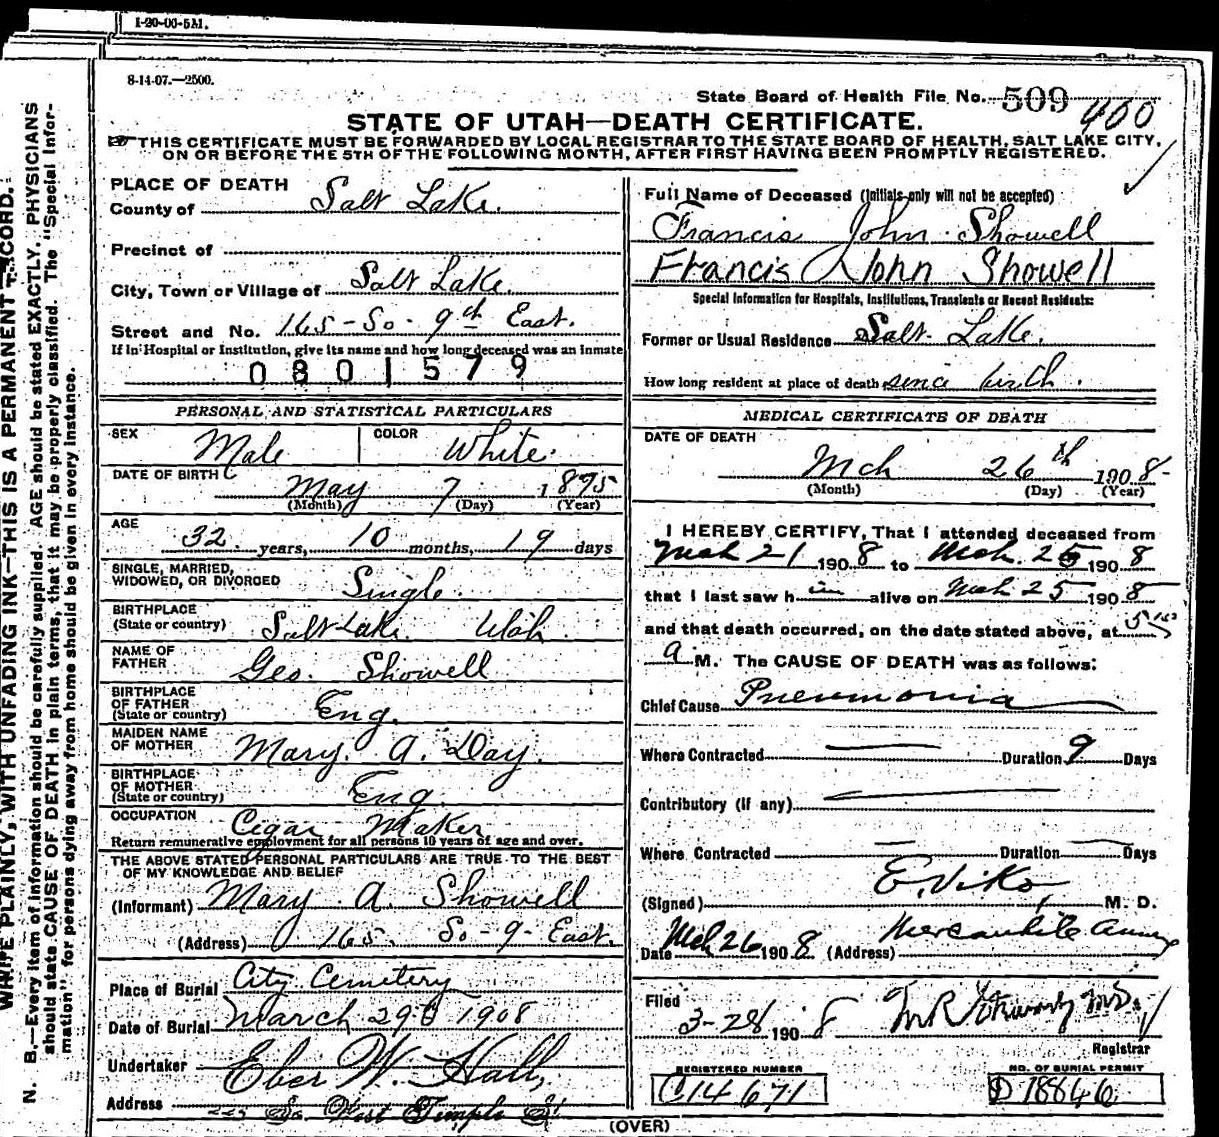 1-20-06-5M.
8-14-07.—2500.
State Board of Health File No. 509 400
STATE OF UTAH—DEATH CERTIFICATE.
THIS CERTIFICATE MUST BE FORWARDED BY LOCAL REGISTRAR TO THE STATE BOARD OF HEALTH, SALT LAKE CITY,
ON OR BEFORE THE 5TH OF THE FOLLOWING MONTH, AFTER FIRST HAVING BEEN PROMPTLY REGISTERED.
WRITE PLAINLY, WITH UNFADING INK—THIS IS A PERMANENT RECORD.
N. B.—Every item of information should be carefully supplied. AGE should be stated EXACTLY. PHYSICIANS
should state CAUSE OF DEATH in plain terms, that it may be properly classified. The "Special Infor-
mation" for persons dying away from home should be given in every instance.
PLACE OF DEATH
County of Salt Lake.
Precinct of
City, Town or Village of Salt Lake.
Street and No. 165 - So. 9th East.
If in Hospital or Institution, give its name and how long deceased was an inmate
0801579
PERSONAL AND STATISTICAL PARTICULARS
SEX Male COLOR White.
DATE OF BIRTH May 7 1875
(Month) (Day) (Year)
AGE
32 years, 10 months, 19 days
SINGLE, MARRIED,
WIDOWED, OR DIVORCED Single.
BIRTHPLACE
(State or country) Salt Lake. Utah.
NAME OF
FATHER Geo. Showell
BIRTHPLACE
OF FATHER
(State or country) Eng.
MAIDEN NAME
OF MOTHER Mary. A. Day.
BIRTHPLACE
OF MOTHER
(State or country) Eng.
OCCUPATION Cegar Maker
Return remunerative employment for all persons 10 years of age and over.
THE ABOVE STATED PERSONAL PARTICULARS ARE TRUE TO THE BEST
OF MY KNOWLEDGE AND BELIEF
(Informant) Mary. A. Showell
(Address) 165. So-9-East.
Place of Burial City Cemetery
Date of Burial March 29 1908
Undertaker Eber W. Hall,
Address So. West Temple St
Full Name of Deceased (Initials only will not be accepted)
Francis John Showell
Francis John Showell
Special Information for Hospitals, Institutions, Transients or Recent Residents:
Former or Usual Residence Salt Lake.
How long resident at place of death since birth.
MEDICAL CERTIFICATE OF DEATH
DATE OF DEATH
Mch 26th 1908
(Month) (Day) (Year)
I HEREBY CERTIFY, That I attended deceased from
Mch 21 1908 to Mch. 25 1908
that I last saw him alive on Mch 25 1908
and that death occurred, on the date stated above, at 5
a M. The CAUSE OF DEATH was as follows:
Chief Cause Pneumonia
Where Contracted Duration 9 Days
Contributory (if any)
Where Contracted Duration Days
(Signed) E. Viko M. D.
Date Mch 26 1908 (Address) Mercantile
Filed
3-28 1908
Registrar
REGISTERED NUMBER
C14671
NO. OF BURIAL PERMIT
D 18846
(OVER)